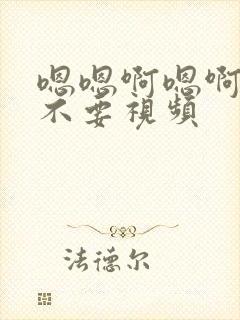 嗯嗯啊嗯啊
不要視頻
法德尔